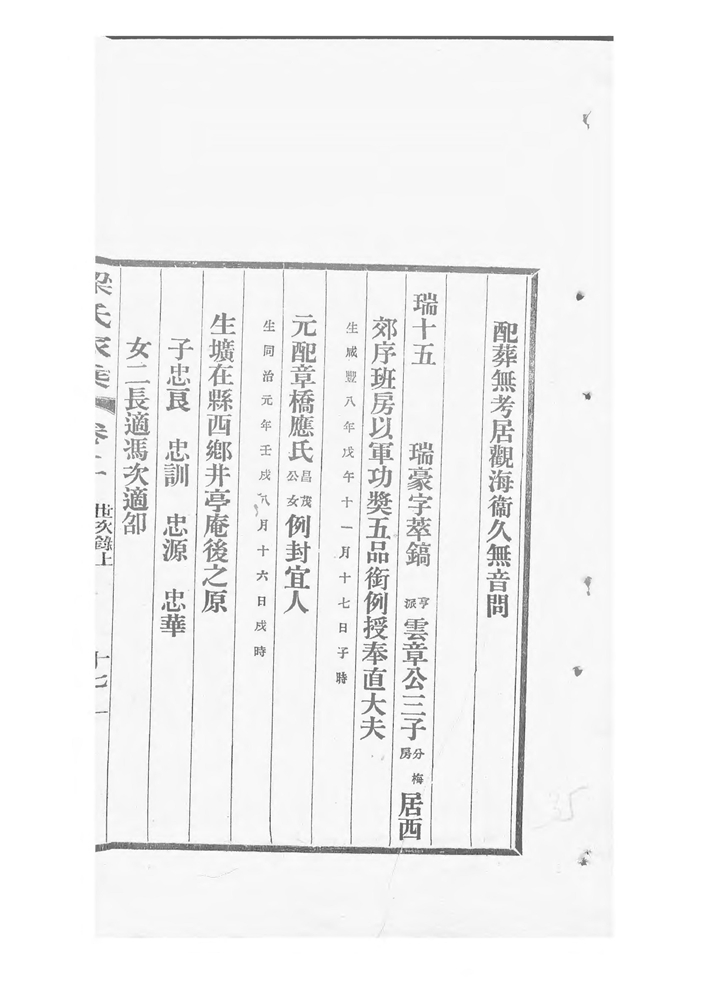 配葬無考居觀海衞久無音問
瑞十五 瑞豪字萃鎬亨派雲章公三子分梅房居西
郊序班房以軍功獎五品銜例授奉直大夫
生咸豐八年戊午十一月十七日子時
元配章橋應氏昌茂公女例封宜人
生同治元年壬戌八月十六日戌時
生壙在縣西鄉井亭庵後之原
子忠良 忠訓 忠源 忠華
女二長適馮次適郃
梁氏家乘 卷二 世次錄上 十七
35